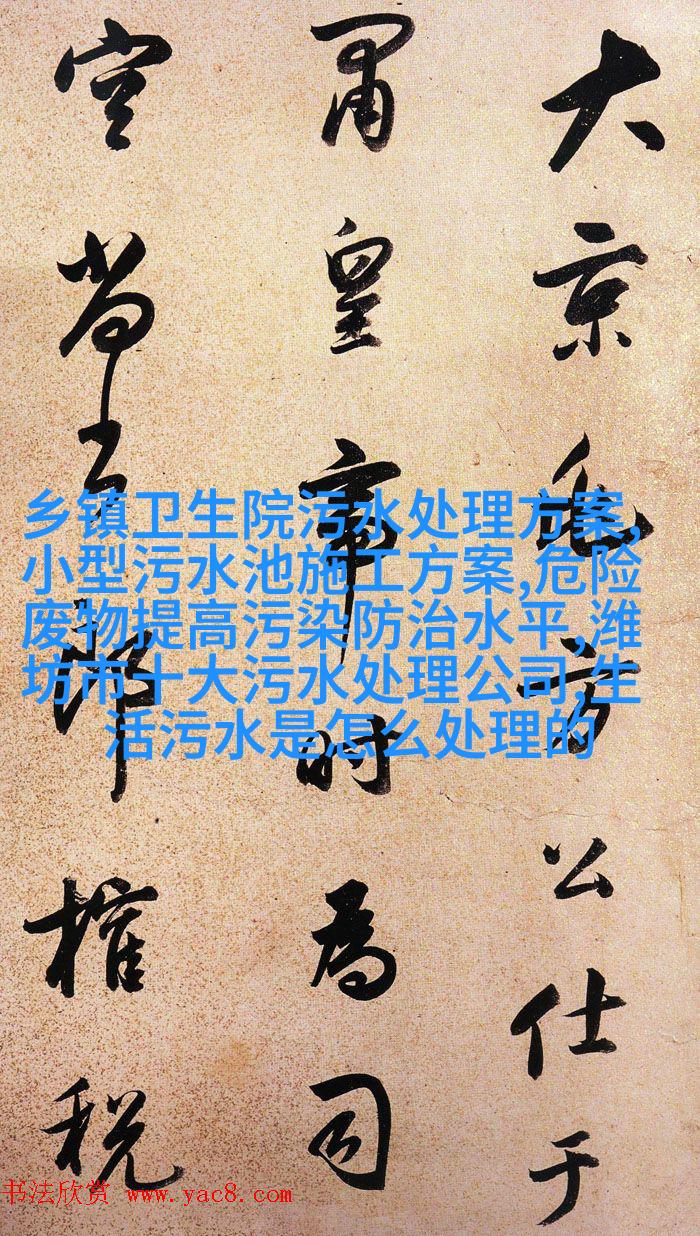 大京兆方公仕于
肅皇帝时為司
空尚書郎榷税
乡镇卫生院污水处理方案,
小型污水池施工方案,危险
废物提高污染防治水平,潍
坊市十大污水处理公司,生
活污水是怎么处理的
书法欣赏 www.yac8.com